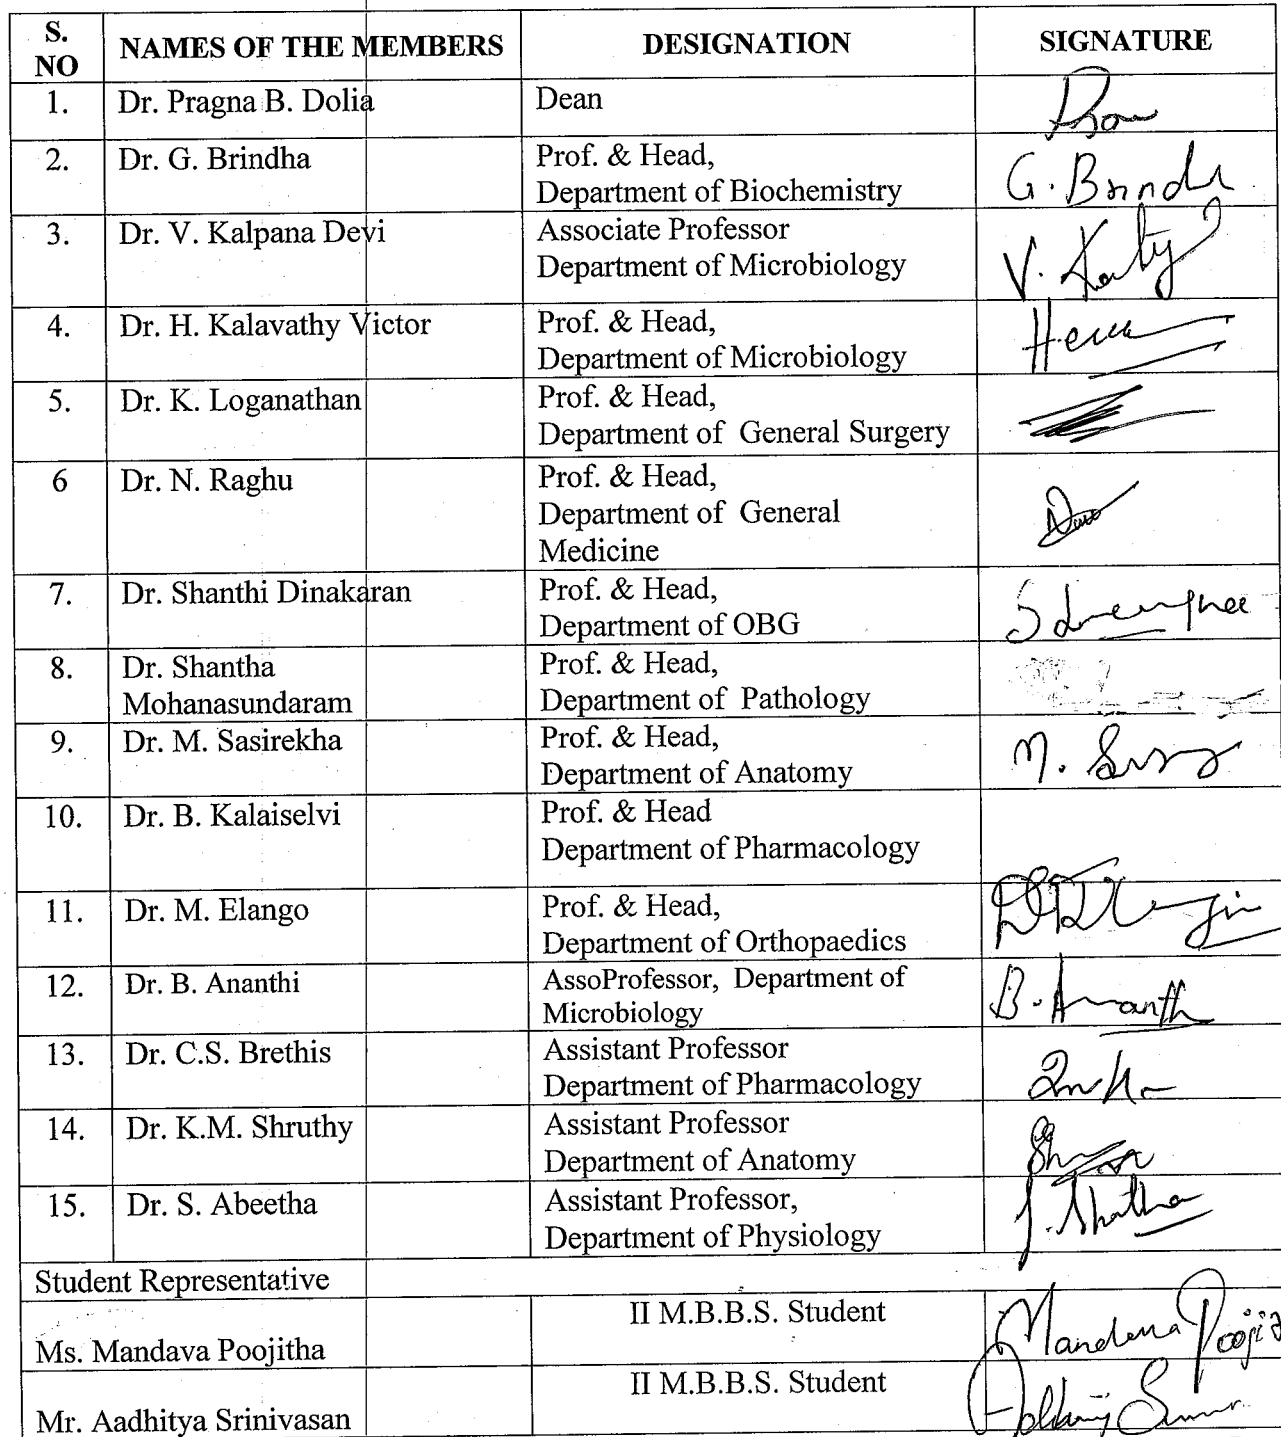 S. NO NAMES OF THE MEMBERS DESIGNATION SIGNATURE
1. Dr. Pragna B. Dolia Dean
2. Dr. G. Brindha Prof. & Head,
Department of Biochemistry G. Brindh
3. Dr. V. Kalpana Devi Associate Professor
Department of Microbiology V.
4. Dr. H. Kalavathy Victor Prof. & Head,
Department of Microbiology
5. Dr. K. Loganathan Prof. & Head,
Department of General Surgery
6 Dr. N. Raghu Prof. & Head,
Department of General
Medicine
7. Dr. Shanthi Dinakaran Prof. & Head,
Department of OBG
8. Dr. Shantha Prof. & Head,
Mohanasundaram Department of Pathology
9. Dr. M. Sasirekha Prof. & Head,
Department of Anatomy
10. Dr. B. Kalaiselvi Prof. & Head
Department of Pharmacology
11. Dr. M. Elango Prof. & Head,
Department of Orthopaedics
12. Dr. B. Ananthi AssoProfessor, Department of
Microbiology B. Ananth
13. Dr. C.S. Brethis Assistant Professor
Department of Pharmacology
14. Dr. K.M. Shruthy Assistant Professor
Department of Anatomy
15. Dr. S. Abeetha Assistant Professor,
Department of Physiology
Student Representative
II M.B.B.S. Student
Ms. Mandava Poojitha
II M.B.B.S. Student
Mr. Aadhitya Srinivasan